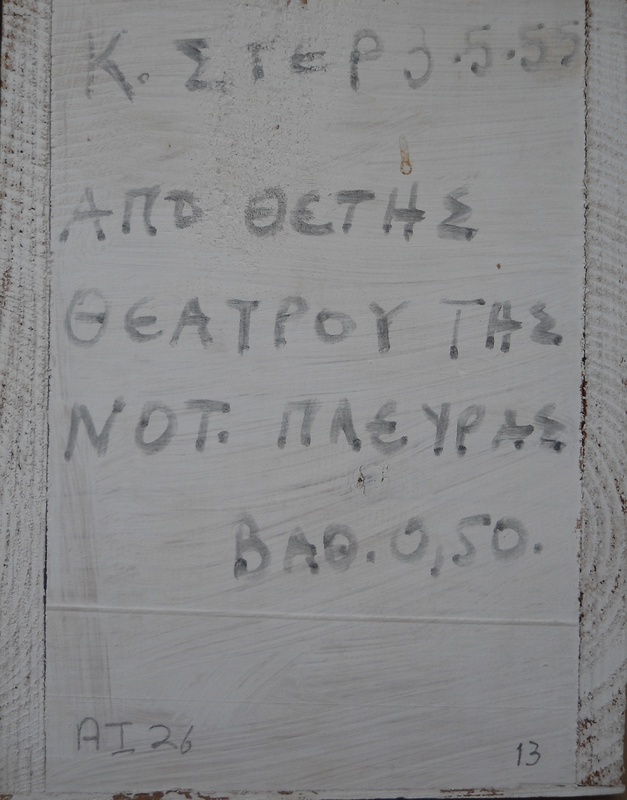 Κ. ΣΤΕΡ 3.5.55
ΑΠΟ ΘΕΤΗΣ
ΘΕΑΤΡΟΥ ΤΗΣ
ΝΟΤ. ΠΛΕΥΡΑΣ
ΒΑΘ. 0,50.
ΑΙ 26
13